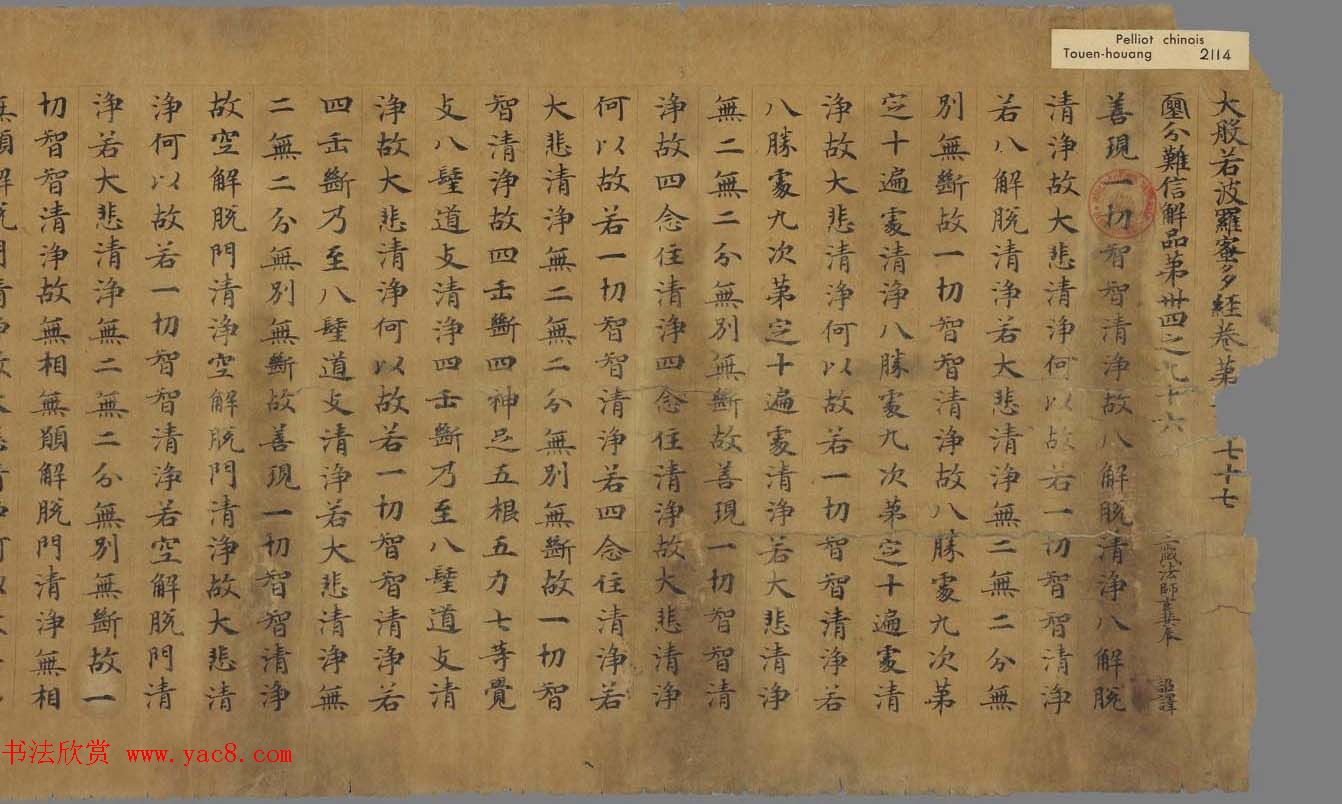 Pelliot chinois
Touen-houang 2114
大般若波羅蜜多経卷第七十七
𡔈分難信解品第卅四之九十六 三藏法師玄奘奉 詔譯
善現一切智智清淨故八解脫清淨八解脫
清淨故大悲清淨何以故若一切智智清淨
若八解脫清淨若大悲清淨無二無二分無
別無斷故一切智智清淨故八勝處九次第
定十遍處清淨八勝處九次第定十遍處清
淨故大悲清淨何以故若一切智智清淨若
八勝處九次第定十遍處清淨若大悲清淨
無二無二分無別無斷故善現一切智智清
淨故四念住清淨四念住清淨故大悲清淨
何以故若一切智智清淨若四念住清淨若
大悲清淨無二無二分無別無斷故一切智
智清淨故四𠙺斷四神足五根五力七等覺
支八聖道支清淨四𠙺斷乃至八聖道支清
淨故大悲清淨何以故若一切智智清淨若
四𠙺斷乃至八聖道支清淨若大悲清淨無
二無二分無別無斷故善現一切智智清淨
故空解脫門清淨空解脫門清淨故大悲清
淨何以故若一切智智清淨若空解脫門清
淨若大悲清淨無二無二分無別無斷故一
切智智清淨故無相無願解脫門清淨無相
书法欣赏 www.yac8.com